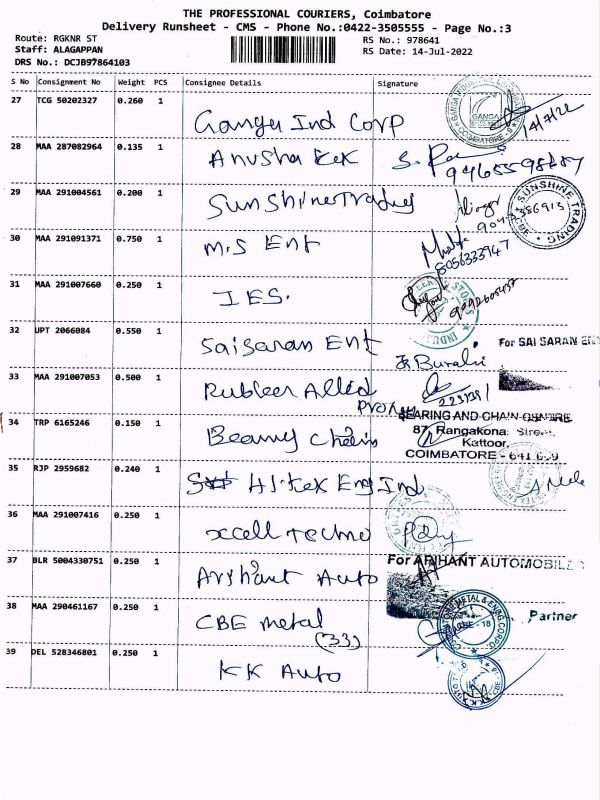 THE PROFESSIONAL COURIERS, Coimbatore
Delivery Runsheet - CMS - Phone No.:0422-3505555 - Page No.:3
Route: RGKNR ST
RS No.: 978641
Staff: ALAGAPPAN
RS Date: 14-Jul-2022
DRS No.: DCJB97864103
S No Consignment No Weight PCS Consignee Details Signature
27 TCG 50202327 0.260 1
Ganga Ind Corp
GANGA
COIMBATORE
14/7/22
28 MAA 287082964 0.135 1
Anusha Tek
29 MAA 291004561 0.200 1
Sunshine Trading
SUNSHINE TRADING
CBE
30 MAA 291091371 0.750 1
M.S Ent
8056333947
31 MAA 291007660 0.250 1
I.E.S.
32 UPT 2066084 0.550 1
Saisaran Ent
For SAI SARAN EN
33 MAA 291007053 0.500 1
Rubber Allied
34 TRP 6165246 0.150 1
BEARING AND CHAIN CENTRE
87, Rangakona Street,
Kattoor,
COIMBATORE - 641 009
35 RJP 2959682 0.240 1
Hi-tex Eng Ind
36 MAA 291007416 0.250 1
xcell techno
37 BLR 5004330751 0.250 1
Arihant Auto
For ARIHANT AUTOMOBILES
Partner
38 MAA 290461167 0.250 1
CBE metal
(33)
39 DEL 528346801 0.250 1
KK Auto